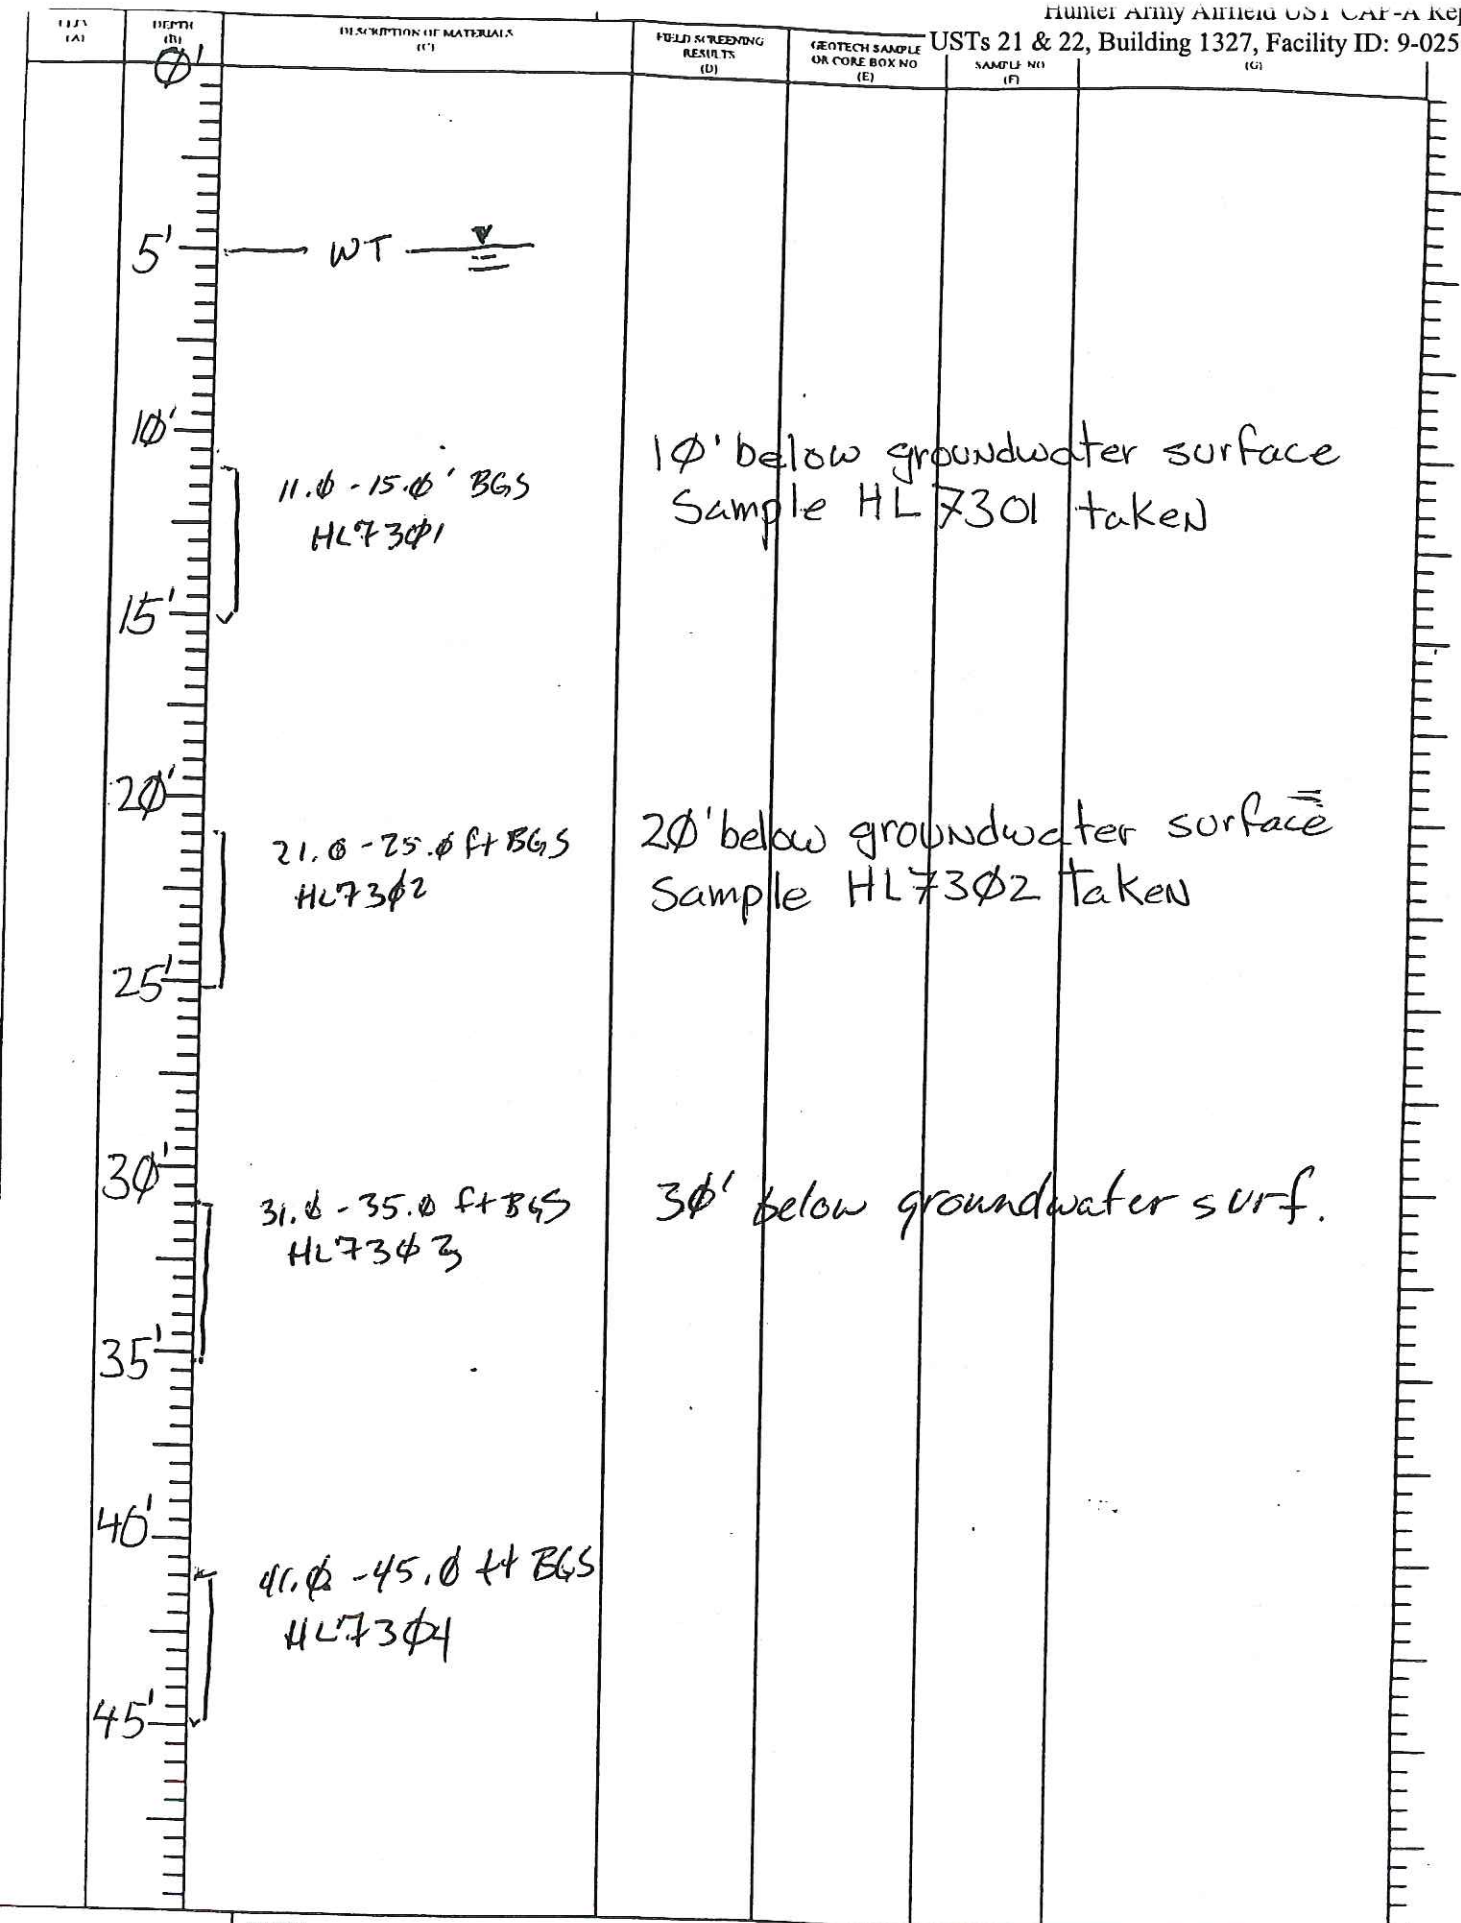 Hunter Army Airfield UST CAP-A Rep
USTs 21 & 22, Building 1327, Facility ID: 9-025
(A)
DEPTH
(B)
DESCRIPTION OF MATERIALS
(C)
FIELD SCREENING
RESULTS
(D)
GEOTECH SAMPLE
OR CORE BOX NO
(E)
SAMPLE NO
(F)
(G)
Ø'
5'
WT
1Ø'
11.Ø - 15.Ø' BGS
HL73Ø1
1Ø' below groundwater surface
Sample HL7301 taken
15'
2Ø'
21.Ø - 25.Ø ft BGS
HL73Ø2
2Ø' below groundwater surface
Sample HL73Ø2 taken
25'
3Ø'
31.Ø - 35.Ø ft BGS
HL73Ø3
3Ø' below groundwater surf.
35'
4Ø'
41.Ø - 45.Ø ft BGS
HL73Ø4
45'